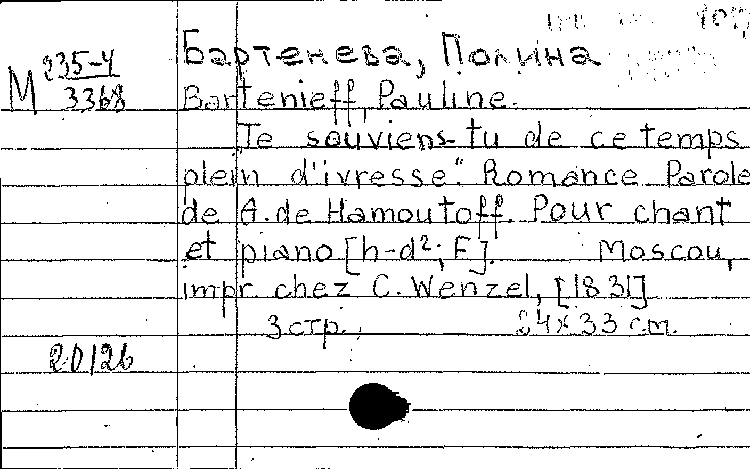 Бартенева, Полина
М 235-4
3368
Bartenieff, Pauline.
"Te souviens-tu de ce temps
plein d'ivresse". Romance. Parole
de A. de Hamoutoff. Pour chant
et piano [h-d²; F]. Moscou,
impr. chez C. Wenzel, [1831]
3 стр. 24x33 cm.
20126